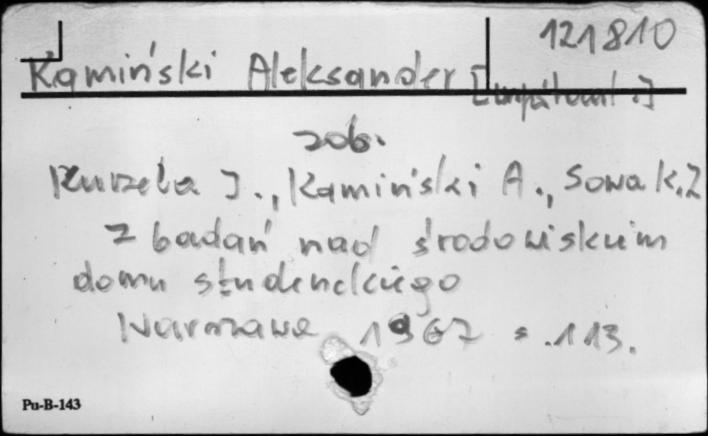 121810
Kamiński Aleksander [współaut.]
zob.
Kurzela J., Kamiński A., Sowa K.Z
Z badań nad środowiskiem
domu studenckiego
Warszawa 1967 s. 113.
Pu-B-143